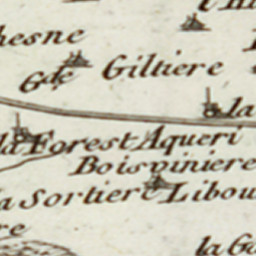 hesne
Gde Giltiere
la
la Forest Aqueri
Boisviniere
a Sortiere Libou
re
la Go